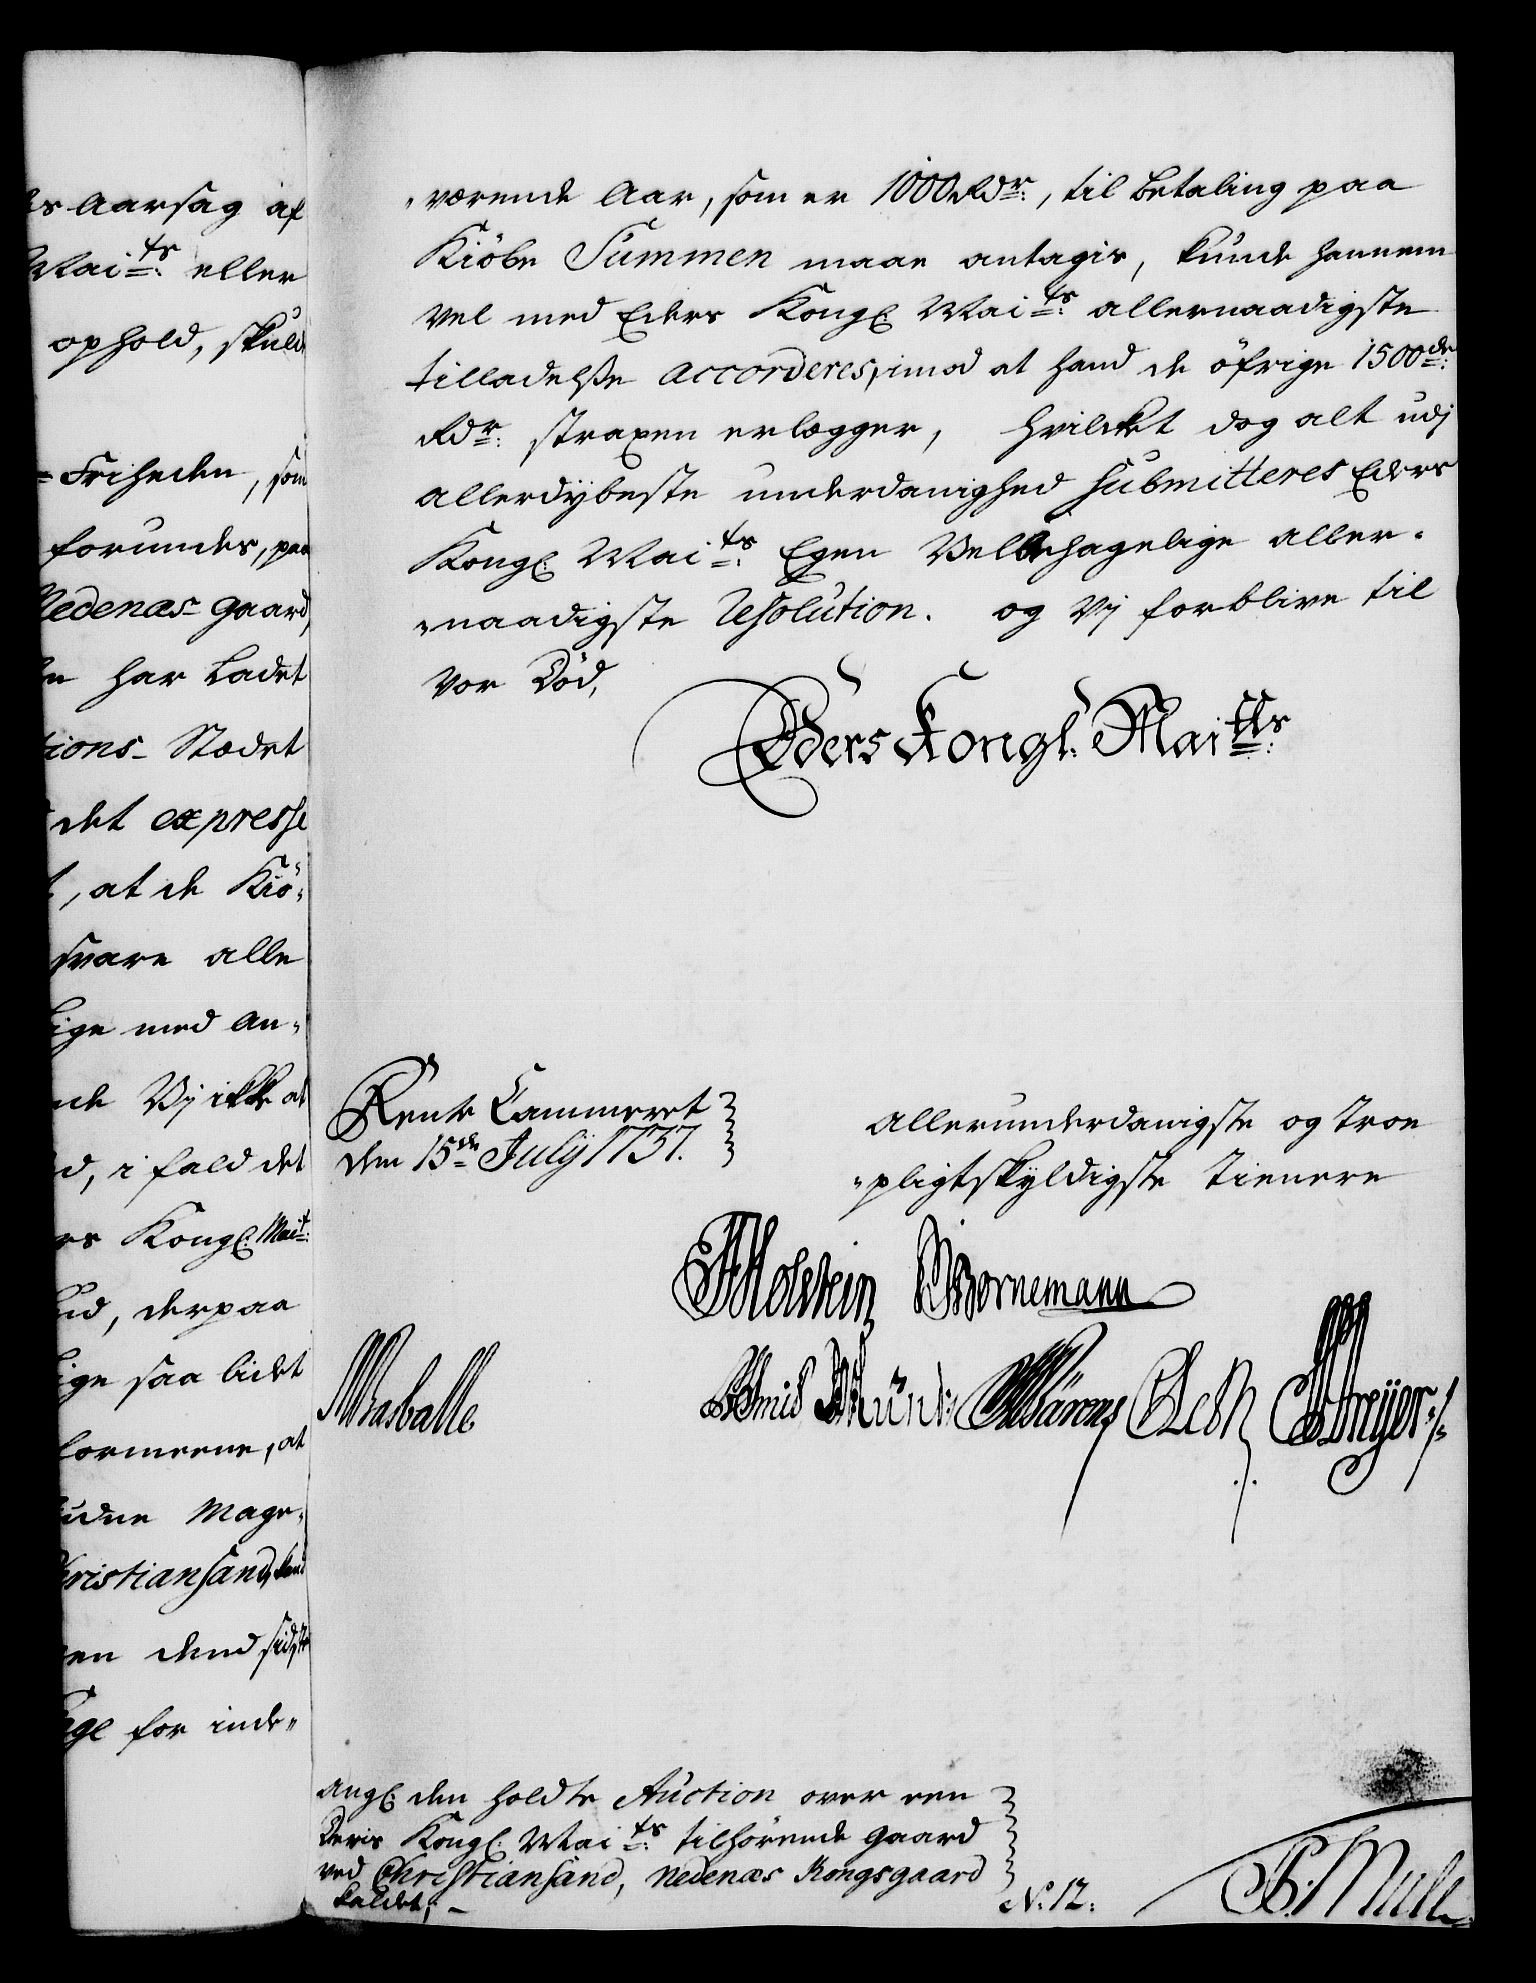 es Aarsag af
Mai:ts eller
ophold, skuld
Friheden, som
forundes, paa
Nedenæs-gaard,
har Ladet
tions-Stædet
det expresse
, at de Kiö-
svare alle
lige med an-
Vij ikke at
d, i fald det
rs Kongl: Mait:
derpaa
lige saa lidet
formeene, at
Mage-
Christiansand,
dend sidste
for inde-
-værende Aar, som er 1000 Rdr:, til betaling paa
Kiöbe Summen maae antages, kunde hannem
vel med Eders Kongl: Mai:ts allernaadigste
tilladelße accorderes, imod at hand de öfrige 1500de:
Rdr: straxen erlægger, hvilket dog alt udj
allerdÿbeste underdanighed submitteres Eders
Kongl: Mai:ts Egen Velbehagelige aller-
-naadigste Resolution. og Vj forblive til
vor Död,
Eders Kongl: Mai:tts
Rente Cammeret
den 15de July 1737.
allerunderdanigste og troe
-pligtskÿldigste tienere
Holstein Bornemann
Basballe
Smid Munk Wärens Dreyer
angl: den holdte Auction over een
Deris Kongl: Mai:ts tilhörende gaard
ved Christiansand, Nedenæs Kongsgaard
kaldet;
No: 12: